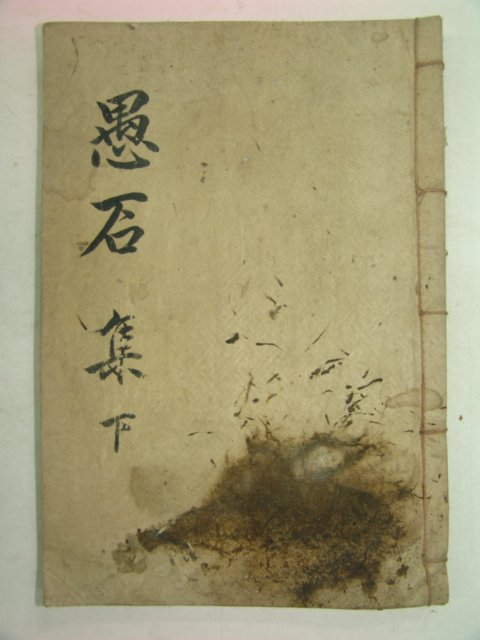 愚石集下